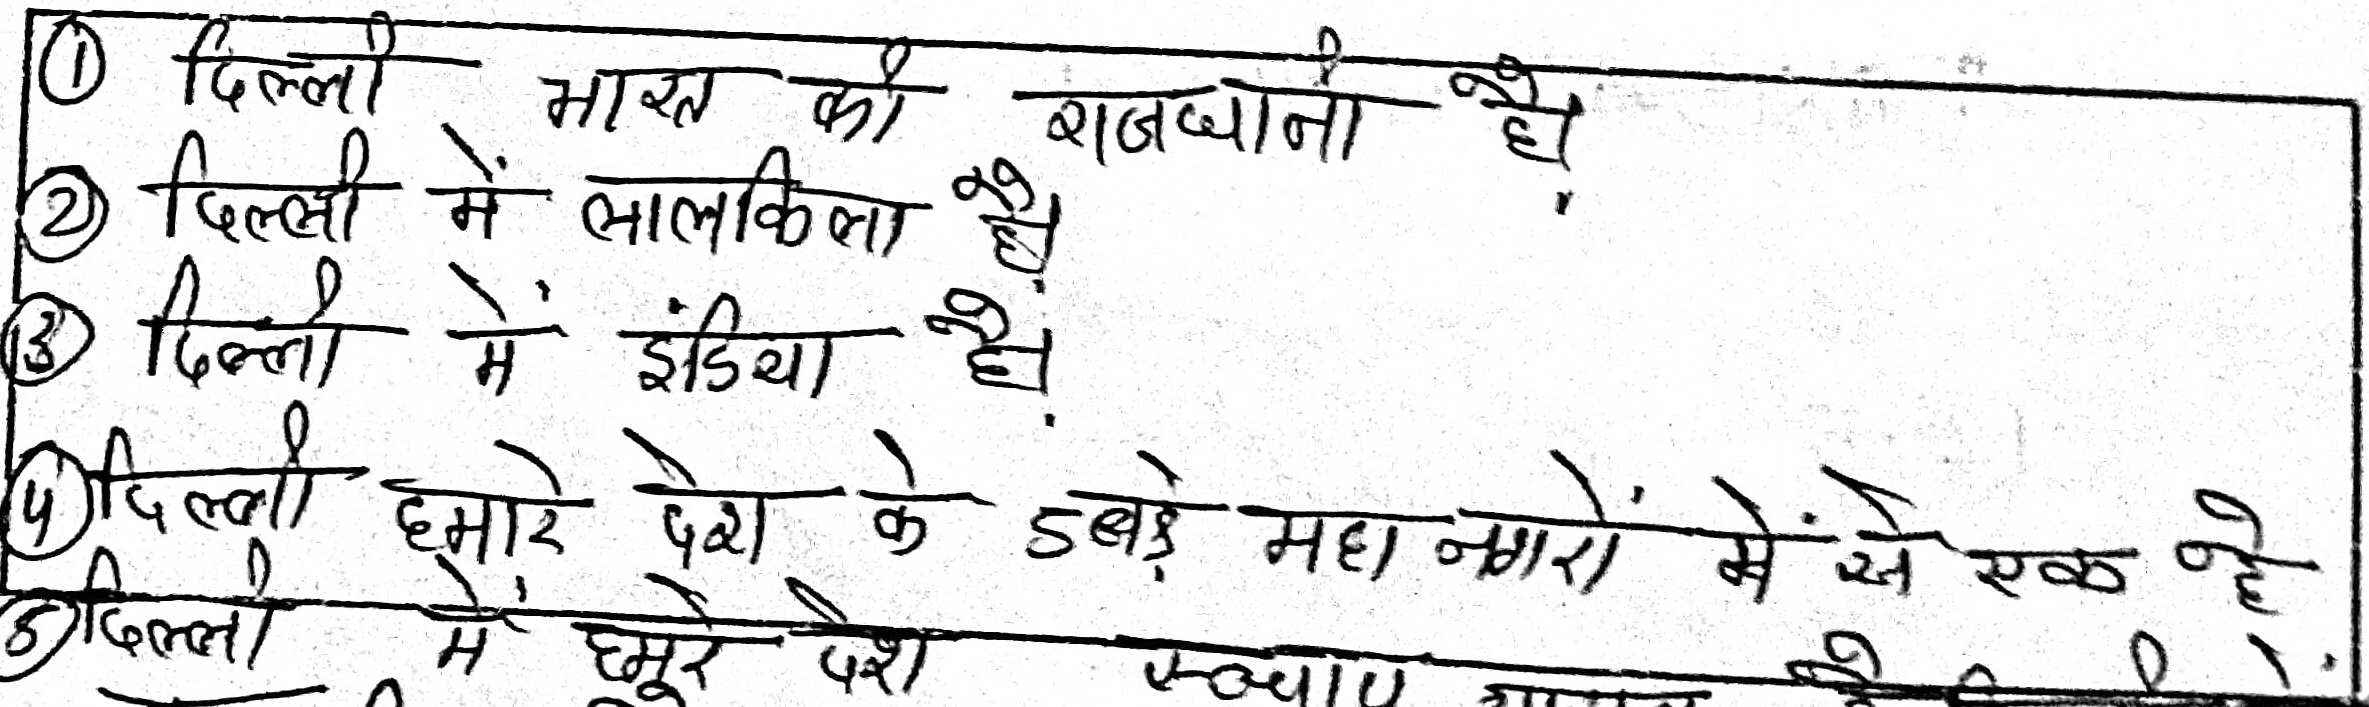 ① दिल्ली भारत की राजधानी है।
② दिल्ली में लालकिला है।
③ दिल्ली में इंडिया है।
④ दिल्ली हमारे देश के बड़े महा नगरों में से एक है
⑤ दिल्ली में हमारे देश